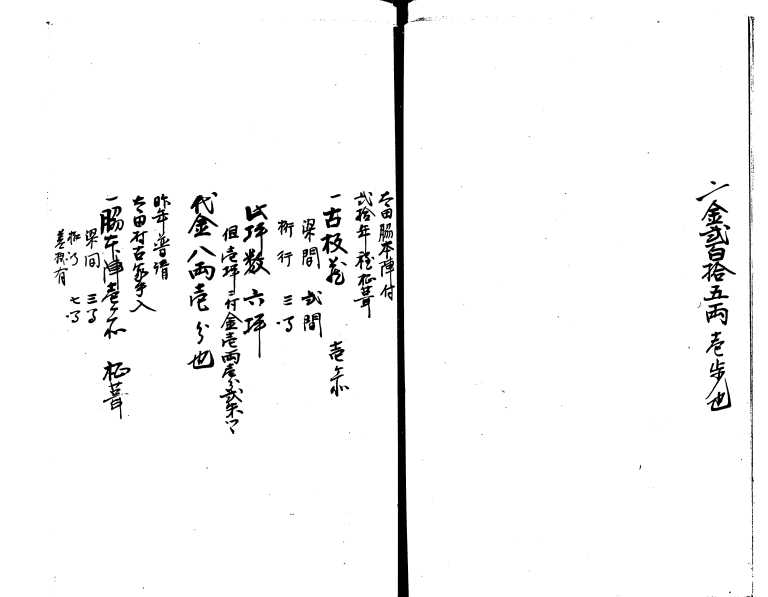 〆金弐百拾五両壱歩也
太田脇本陣付
弐拾年程柾葺
一古板蔵 壱ヶ所
梁間 弐間
桁行 三間
此坪数六坪
但壱坪ニ付金壱両壱分弐朱ツヽ
代金八両壱分也
昨年普請
太田村古家手入
一脇本陣壱ヶ所 柾葺
梁間 三間
桁行 七間
差掛有